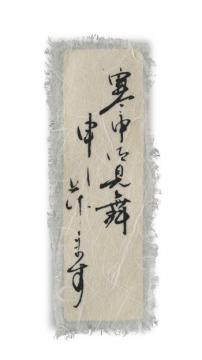 寒中御見舞
申し上げます